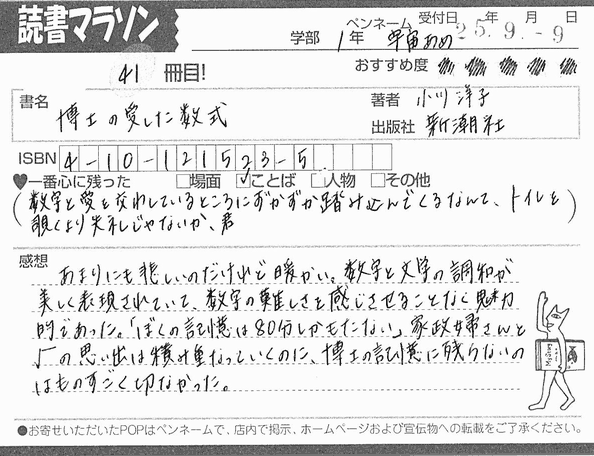 読書マラソン
学部 1年 ペンネーム 宇宙あめ 受付日 25年 9.月 -9日
41 冊目! おすすめ度
書名 博士の愛した数式
著者 小川洋子
出版社 新潮社
ISBN 4-10-121523-5
♥一番心に残った □場面 ☑ことば □人物 □その他
(数字と愛を交わしているところにずかずか踏み込んでくるなんて、トイレを
覗くより失礼じゃないか、君)
感想 あまりにも悲しいのだけれど暖かい。数字と文字の調和が
美しく表現されていて、数字の難しさを感じさせることなく魅力
的であった。「ぼくの記憶は80分しかもたない」家政婦さんと
√の思い出は積み重なっていくのに、博士の記憶に残らないの
はものすごく切なかった。
●お寄せいただいたPOPはペンネームで、店内で掲示、ホームページおよび宣伝物への転載をご了承ください。